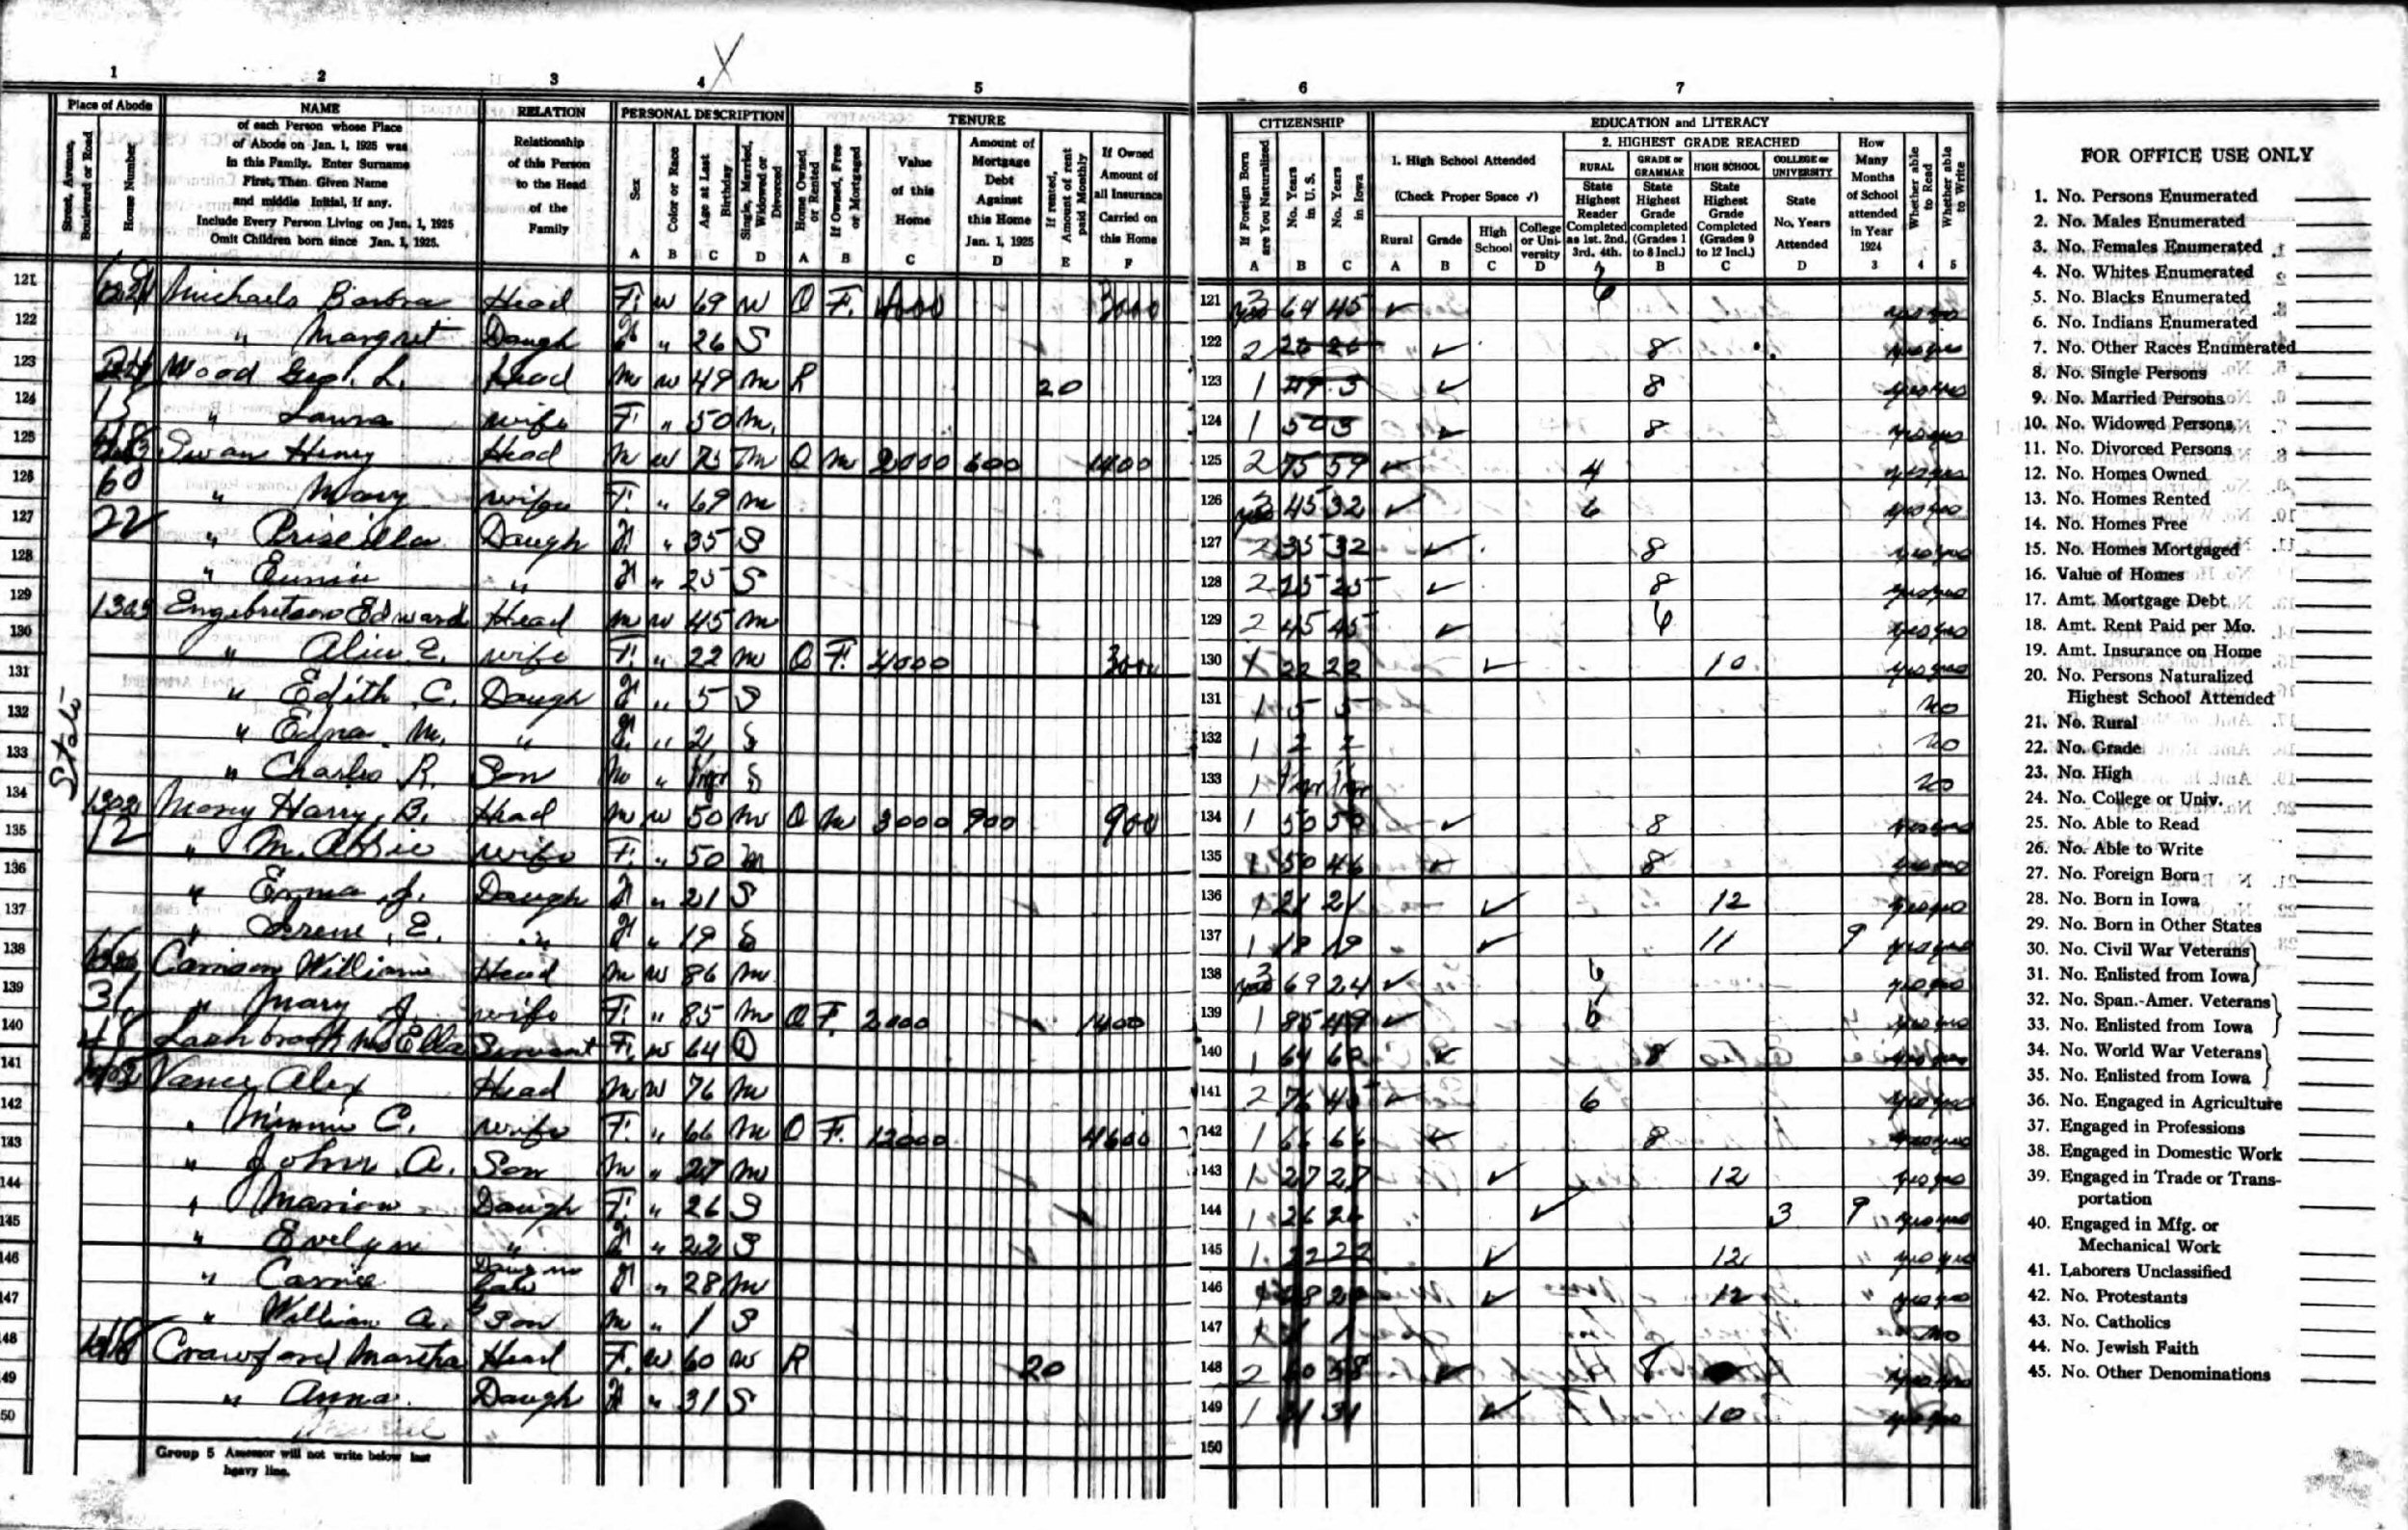 1 2 3 4 5
Place of Abode NAME RELATION PERSONAL DESCRIPTION TENURE
Street, Avenue, Boulevard or Road
House Number
of each Person whose Place
of Abode on Jan. 1, 1925 was
in this Family. Enter Surname
First, Then Given Name
and middle Initial, if any.
Include Every Person Living on Jan. 1, 1925
Omit Children born since Jan. 1, 1925.
Relationship
of this Person
to the Head
of the
Family
Sex
Color or Race
Age at Last Birthday
Single, Married, Widowed or Divorced
Home Owned or Rented
If Owned, Free or Mortgaged
Value
of this
Home
Amount of
Mortgage
Debt
Against
this Home
Jan. 1, 1925
If rented, Amount of rent paid Monthly
If Owned
Amount of
all Insurance
Carried on
this Home
A B C D A B C D E F
121 Michaels Barbra Head F. w 69 w O F. 4000 3000
122 " Margret Daugh F " 26 S
123 Wood Geo. L. Head m w 49 m R 20
124 " Laura wife F. " 50 m.
125 Swan Henry Head m w 75 m O m 2000 600 1400
126 60 " Mary wife F. " 69 m
127 22 " Priscilla Daugh F " 35 S
128 " Eunice " F " 25 S
129 1303 Engebretson Edward Head m w 45 m
130 " Alice E. wife F. " 22 m O F. 4000 3000
131 " Edith C. Daugh F " 5 S
132 " Edna M. " F " 2 S
133 " Charles R. Son m " 1 yr S
State
134 1302 Harry B. Head m w 50 m O m 3000 900 900
135 12 " M. Abbie wife F. " 50 m
136 " Erma J. Daugh F " 21 S
137 " Irene E. " F " 19 S
138 William Head m w 86 m
139 " Mary J. wife F. " 85 m O F. 2000 1400
140 Mrs Ella Servant F. w 64 D
141 Vance Alex Head m w 76 m
142 " Minnie C. wife F. " 66 m O F. 12000 4600
143 " John A. Son m " 27 m
144 " Marion Daugh F. " 26 S
145 " Evelyn " F " 22 S
146 " Carrie Daug in Law F " 28 m
147 " William A. G Son m " 1 S
148 Crawford Martha Head F. w 60 w R 20
149 " Anna. Daugh F " 31 S
150
Group 5 Assessor will not write below last
heavy line.
6 7
CITIZENSHIP EDUCATION and LITERACY
If Foreign Born are You Naturalized
No. Years in U. S.
No. Years in Iowa
1. High School Attended
(Check Proper Space ✓)
Rural Grade High School College or University
2. HIGHEST GRADE REACHED
RURAL
State Highest Reader Completed as 1st. 2nd, 3rd. 4th.
GRADE or GRAMMAR
State Highest Grade completed (Grades 1 to 8 Incl.)
HIGH SCHOOL
State Highest Grade Completed (Grades 9 to 12 Incl.)
COLLEGE or UNIVERSITY
State No. Years Attended
How Many Months of School attended in Year 1924
Whether able to Read
Whether able to Write
A B C A B C D A B C D 3 4 5
121 64 45 ✓ 6 yes yes
122 2 26 26 ✓ 8 yes yes
123 1 49 3 ✓ 8 yes yes
124 1 50 3 ✓ 8 yes yes
125 2 75 59 ✓ 4 yes yes
126 45 32 ✓ 6 yes yes
127 2 35 32 ✓ 8 yes yes
128 2 25 25 ✓ 8 yes yes
129 2 45 45 ✓ 6 yes yes
130 1 22 22 ✓ 10 yes yes
131 1 5 5 no
132 1 2 2 no
133 1 1 yr 1 yr no
134 1 50 50 ✓ 8 yes yes
135 1 50 46 ✓ 8 yes yes
136 1 21 21 ✓ 12 yes yes
137 1 19 19 ✓ 11 9 yes yes
138 69 24 ✓ 6 yes yes
139 1 85 49 ✓ 6 yes yes
140 1 64 60 ✓ 8 yes yes
141 2 76 45 ✓ 6 yes yes
142 1 66 66 ✓ 8 yes yes
143 1 27 27 ✓ 12 yes yes
144 1 26 26 ✓ 3 9 yes yes
145 1 22 22 ✓ 12 yes yes
146 28 ✓ 12 yes yes
147 1 1 no
148 2 60 58 ✓ 8 yes yes
149 1 31 31 ✓ 10 yes yes
150
FOR OFFICE USE ONLY
1. No. Persons Enumerated
2. No. Males Enumerated
3. No. Females Enumerated
4. No. Whites Enumerated
5. No. Blacks Enumerated
6. No. Indians Enumerated
7. No. Other Races Enumerated
8. No. Single Persons
9. No. Married Persons
10. No. Widowed Persons
11. No. Divorced Persons
12. No. Homes Owned
13. No. Homes Rented
14. No. Homes Free
15. No. Homes Mortgaged
16. Value of Homes
17. Amt. Mortgage Debt
18. Amt. Rent Paid per Mo.
19. Amt. Insurance on Home
20. No. Persons Naturalized
Highest School Attended
21. No. Rural
22. No. Grade
23. No. High
24. No. College or Univ.
25. No. Able to Read
26. No. Able to Write
27. No. Foreign Born
28. No. Born in Iowa
29. No. Born in Other States
30. No. Civil War Veterans
31. No. Enlisted from Iowa
32. No. Span.-Amer. Veterans
33. No. Enlisted from Iowa
34. No. World War Veterans
35. No. Enlisted from Iowa
36. No. Engaged in Agriculture
37. Engaged in Professions
38. Engaged in Domestic Work
39. Engaged in Trade or Trans-
portation
40. Engaged in Mfg. or
Mechanical Work
41. Laborers Unclassified
42. No. Protestants
43. No. Catholics
44. No. Jewish Faith
45. No. Other Denominations